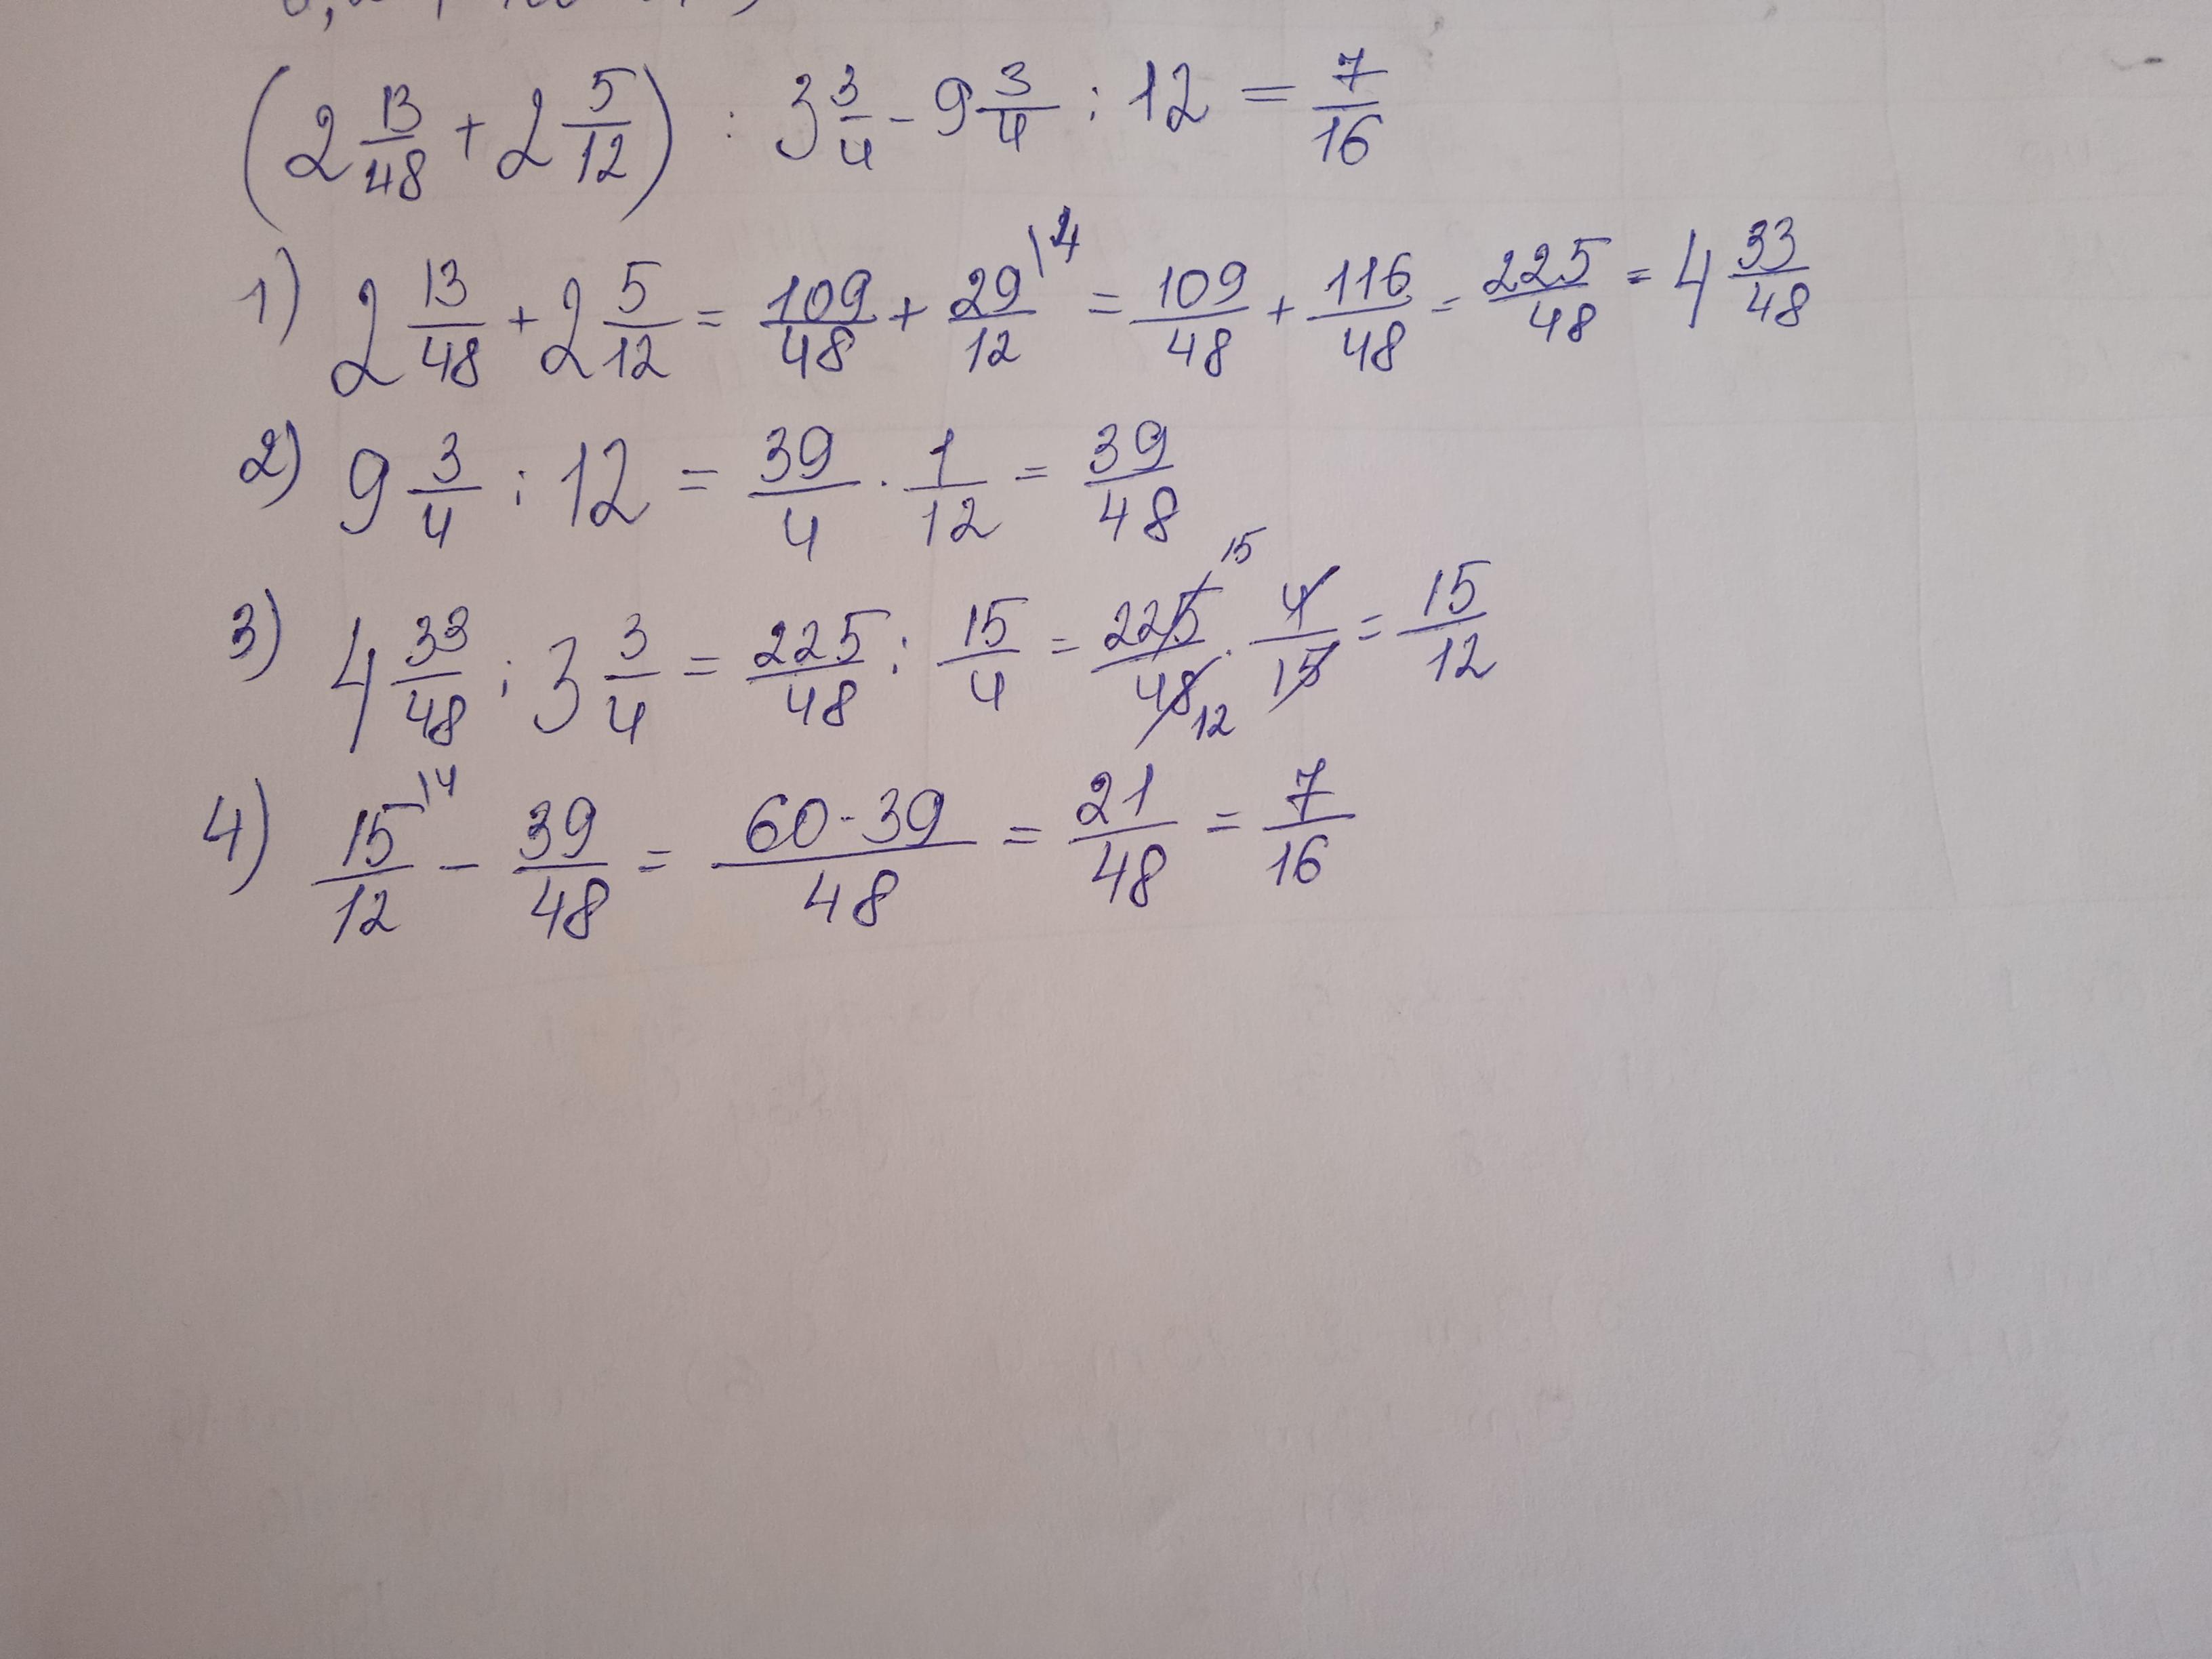 (2 13/48 + 2 5/12) : 3 3/4 - 9 3/4 : 12 = 7/16
1) 2 13/48 + 2 5/12 = 109/48 + 29/12 \4 = 109/48 + 116/48 = 225/48 = 4 33/48
2) 9 3/4 : 12 = 39/4 · 1/12 = 39/48
3) 4 33/48 : 3 3/4 = 225/48 : 15/4 = 225/48 15 12 · 4/15 = 15/12
4) 15/12 \4 - 39/48 = 60-39/48 = 21/48 = 7/16